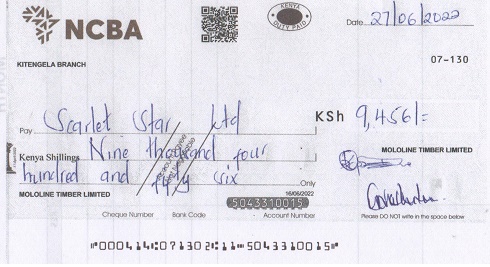 NCBA
KENYA
DUTY PAID
Date 27/06/2022
KITENGELA BRANCH
07-130
Pay Scarlet Star Ltd
KSh 9,456/=
Kenya Shillings Nine thousand four
MOLOLINE TIMBER LIMITED
hundred and fifty six Only
MOLOLINE TIMBER LIMITED
16/06/2022
5043310015
Cheque Number Bank Code Account Number
Please DO NOT write in the space below
⑈000414⑆071302⑆11⑈5043310015⑈